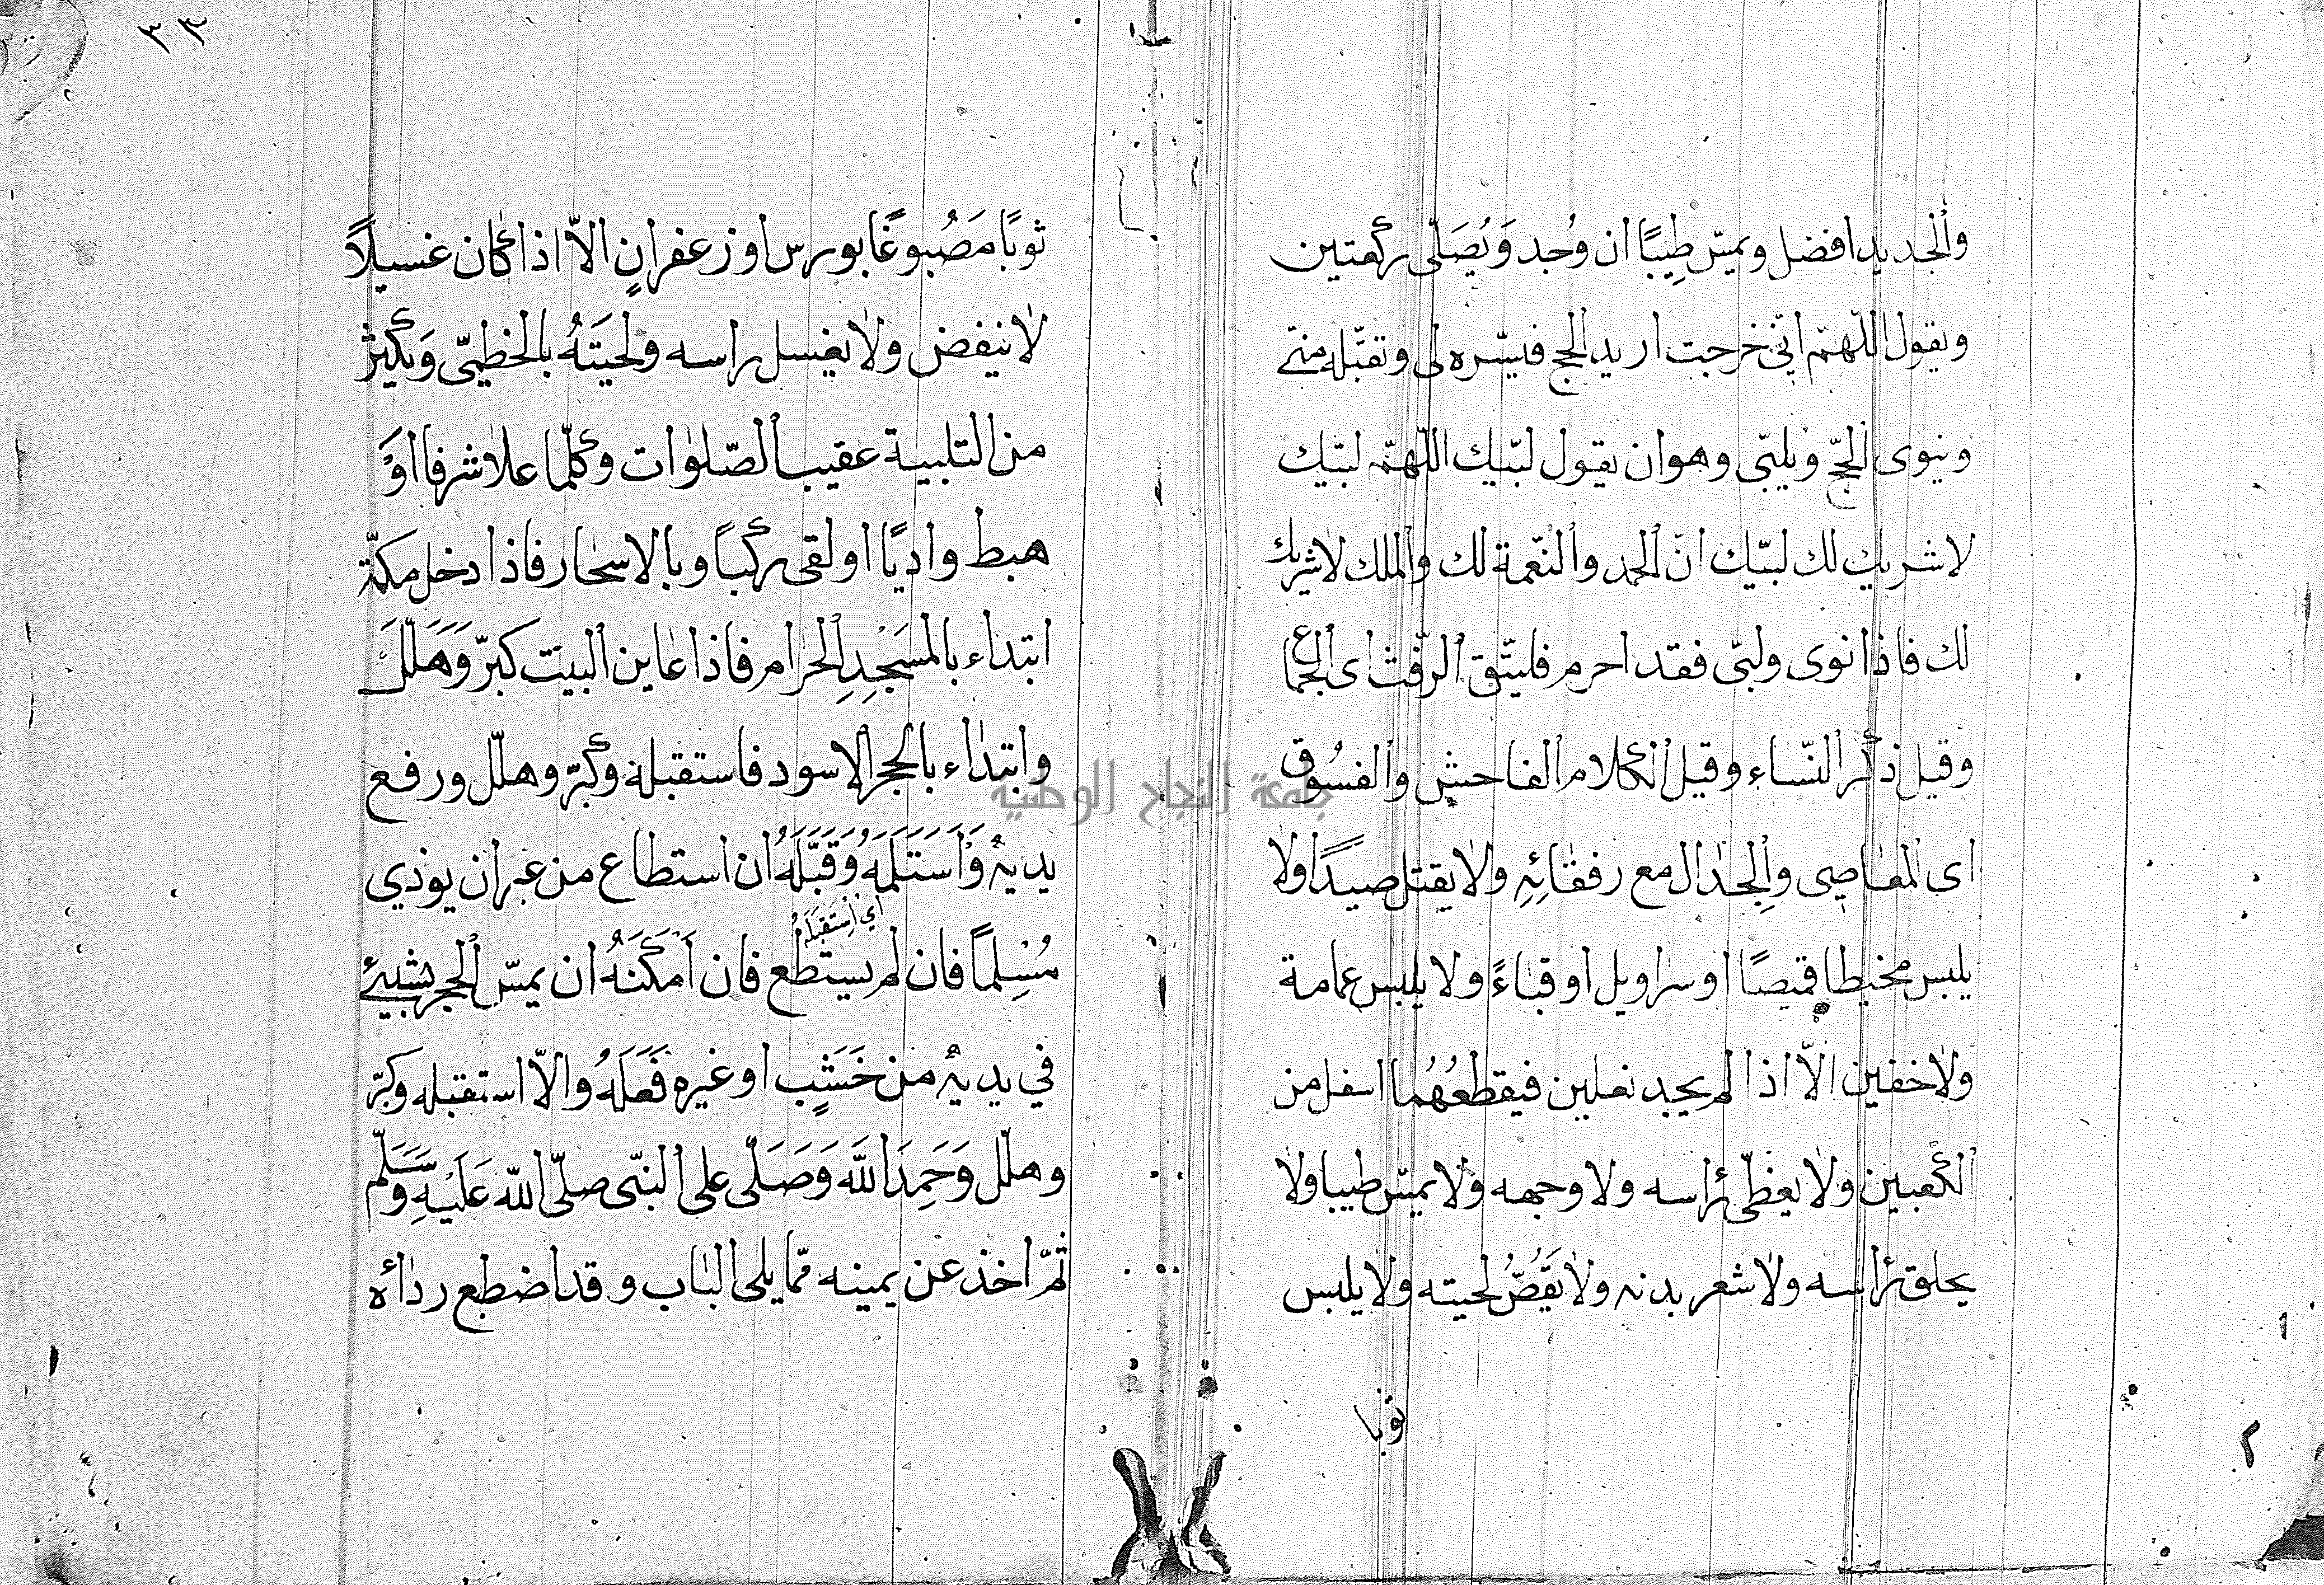 والجديد افضل ويمسّ طِيبًا ان وُجد وَيُصَلّى ركعتين
ويقول اللّهمّ انّى خرجت اريد الحج فيسّره لى وتقبّله منّى
وينوى الحجّ ويلبّى وهو ان يقول لبّيك اللّهمّ لبّيك
لا شريك لك لبّيك انّ الحمد والنّعمة لك والملك لا شريك
لك فاذا نوى ولبّى فقد احرم فليتّق الرّفث اى الجماع
وقيل ذكر النّساء وقيل الكلام الفاحش والفسُوق
اى المعاصى والجِدال مع رفقائِهِ ولا يقتل صيدًا ولا
يلبس مخيطا قميصًا او سراويل او قباءً ولا يلبس عمامة
ولا خفين الاّ اذا لم يجد نعلين فيقطعُهُما اسفل من
الكعبين ولا يغطّى رأسه ولا وجهه ولا يمسّ طيبا ولا
يحلق رأسه ولا شعر بدنه ولا يَقُصُّ لحيته ولا يلبس
ثوبا
٣٣
ثوبًا مَصْبُوغًا بورس او زعفرانٍ الاّ اذا كان غسيلاً
لا ينفض ولا يغسل راسه ولحيَتَهُ بالخطمىّ وَيكثر
من التلبية عقيب الصّلوات وكلّما علا شرفا اوْ
هبط واديًا او لقى ركبًا وبالاسحار فاذا دخل مكّة
ابتداء بالمسَجْدِ الحرام فاذا عاين البيت كبّر وَهَلّلَ
وابتداء بالحجر الاسود فاستقبله وكبّر وهلّل ورفع
يديه وَاَسْتَلَمَهُ وَقَبَّلَهُ ان استطاع من غير ان يوذي
اي اِسْتَقْبَلَهُ
مُسْلِماً فان لم يستطع فان اَمْكَنَهُ ان يمسّ الحجر بشيئ
في يديه من خَشَبٍ او غيره فَعَلَهُ والاّ استقبله وكبّر
وهلّل وَحَمِدَ اللّه وَصَلّى على النبّى صلّى اللّه عَلَيْهِ وَسَلّم
ثمّ اخذ عن يمينه ممّا يلى الباب وقد اضطبع ردائه
جامعة النجاح الوطنية